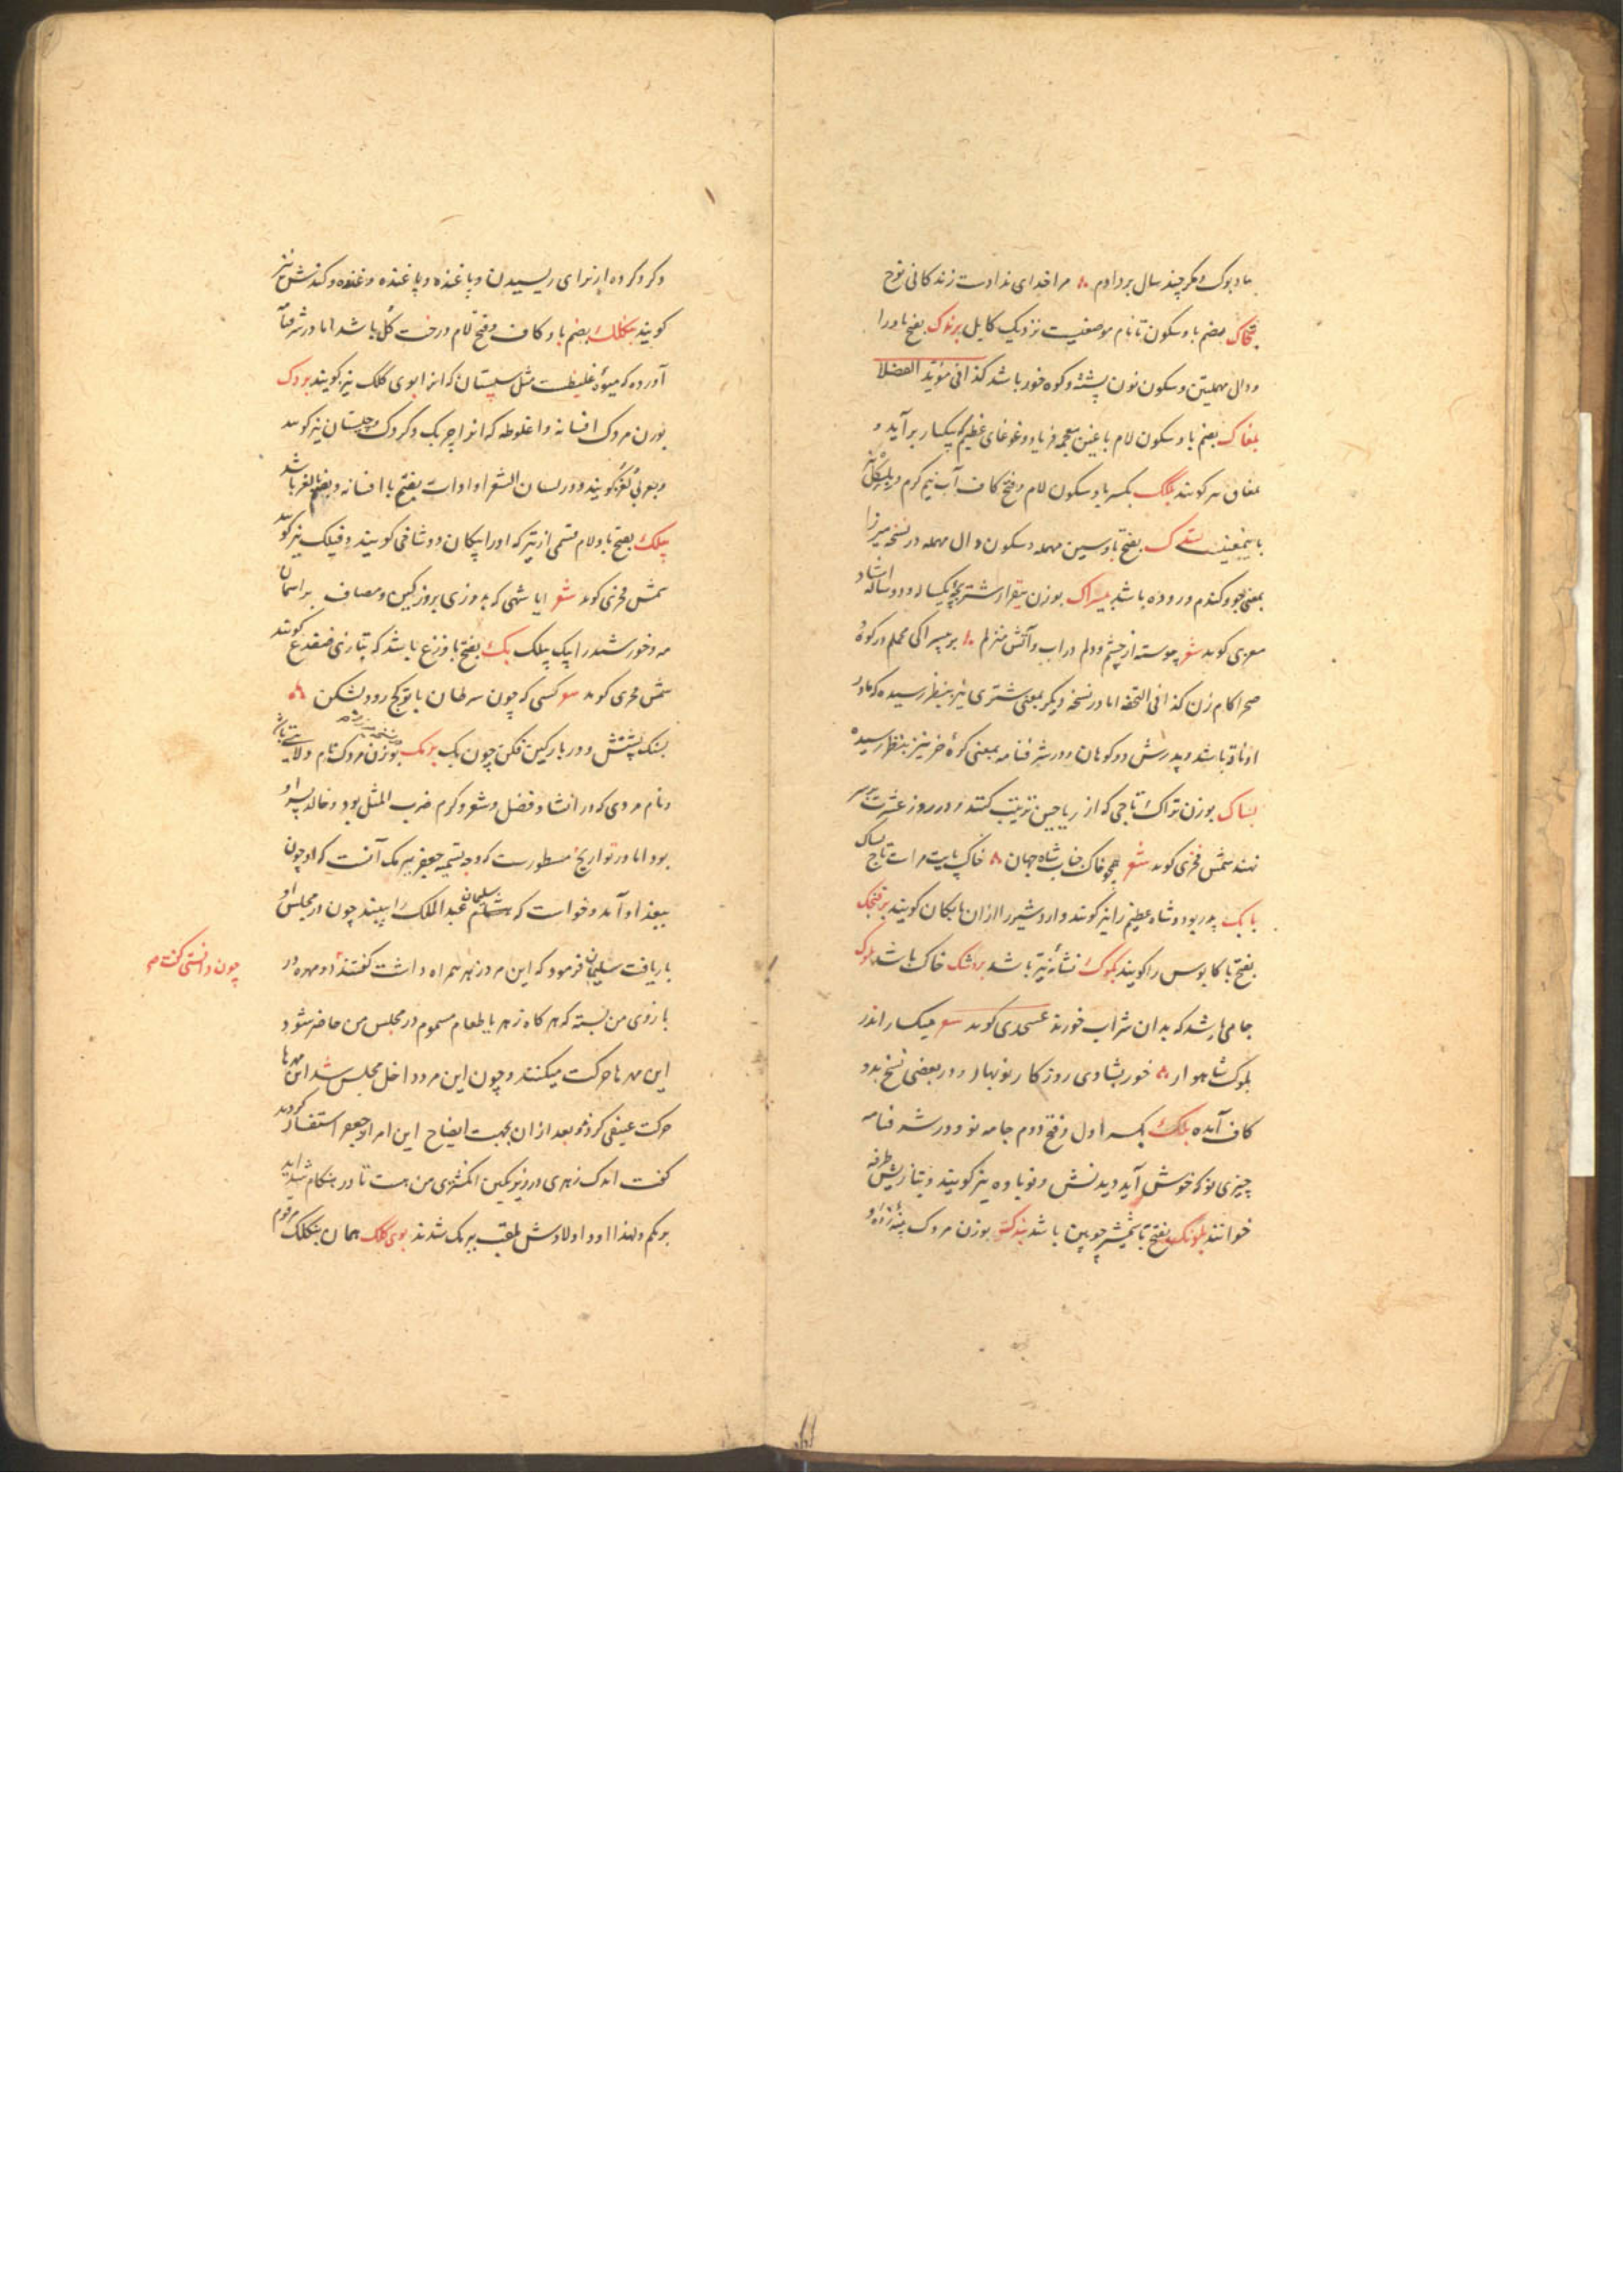 بادبوک و مکر چند سال بردادم مرا خدای ندادست زندکانی نوح
بضم با و سکون تا نام موضعیست نزدیک کابل برندک بفتح با و را
و دال مهملتین و سکون نون پشته و کوه خورد باشد کذا فی مؤید الفضلا
بلغاک بضم با و سکون لام با غین معجمه فریاد و غوغای عظیم که یکبار برآید و
بلغاق نیز کویند بلکک بکسر با و سکون لام و فتح کاف آب نیم کرم و
باینمعنیست بفتح با و سین مهمله و سکون دال مهمله در نسخه میرزا
بمعنی جو و کندم دروده باشد بیسراک بوزن بیقرار شتر بچه یکساله و دو ساله استاد
معزی کوید شعر پیوسته از چشم و دلم در آب و آتش منزلم بر بیسراکی محملم در کوه و
صحرا کام زن کذا فی التحفه اما در نسخه دیکر بمعنی شتری نیز بنظر رسیده که مادر
او ناقه باشد و پدرش دو کوهان و در شرفنامه بمعنی کره خر نیز بنظر رسیده
بساک بوزن تراک تاجی که از ریاحین ترتیب کنند و در روز عشرت بر سر
نهند شمس فخری کوید شعر همچو خاک جناب شاه جهان خاک پایت مرا ست تاج بساک
بابک پدر بود و شاه عظیم را نیز کویند و اردشیر را ازان بابکان کویند برفنجک
بفتح با کابوس را کویند بکوک نشانه تیر باشد بردشک خاک باشد بلوک
جامی باشد که بدان شراب خورند عسجدی کوید شعر میکسار اندر
بلوک شاهوار خور بشادی روزکار نوبهار و در بعضی نسخ بدو
کاف آمده بلکک بکسر اول و فتح دوم جامه نو و در شرفنامه
چیزی نو که خوش آید دیدنش و نوباوه نیز کویند و بتازیش طرفه
خوانند بلونک بفتح با شمشیر چوبین باشد بندک بوزن مردک پنبه زده و
و کرد کرده از برای ریسیدن و پاغنده و پاغنده و غنده و کندش نیز
کویند بنکلک بضم با و کاف و فتح لام درخت کل باشد اما در شرفنامه
آورده که میوه غلیظست مثل سپستان که انرا بوی کلک نیز کویند بردک
بوزن مردک افسانه و اغلوطه که انرا چربک و کردک و چیستان نیز کویند
و بعربی لغز کویند و در لسان الشعرا و ادات بفتح با افسانه و بضم با لغز باشد
پیلک بفتح با و لام قسمی از تیر که او را پیکان دوشاخی کویند و فیلک نیز کویند
شمس فخری کوید شعر ایا شهی که بدوزی بروز کین و مصاف بر آسمان
مه و خورشید را بیک پیلک بک بفتح با وزغ باشد که بتازی ضفدع کویند
شمس فخری کوید شعر کسی که چون سرطان با تو کج رود بشکن
بسنک پشتش و در بارکین فکن چون بک برمک بوزن مردک نام ولایتی باشد
و نام مردی که در انشاد فضل و شعر و کرم ضرب المثل بود و خالد پسر او
بود اما در تواریخ مسطورست که وجه تسمیه جعفر ببرمک آنست که او چون
ببغداد آمد و خواست که سلیمان عبدالملک را ببیند چون در مجلس او
بار یافت سلیمان فرمود که این مرد زهر همراه داشت کفتند
بازوی من بسته که هر کاه زهر یا طعام مسموم در مجلس من حاضر شود
این مهرها حرکت میکنند و چون این مرد داخل مجلس شد این مهرها
حرکت عنیفی کردند و بعد ازان بجهت ایضاح این امر از جعفر استفسار کردند
کفت اندک زهری در زیر نکین انکشتری من هست تا در هنکام شداید
برمکم و لهذا او و اولادش ملقب ببرمک شدند بوی کلک همان بنکلک مرقوم
چون دانستی کفت